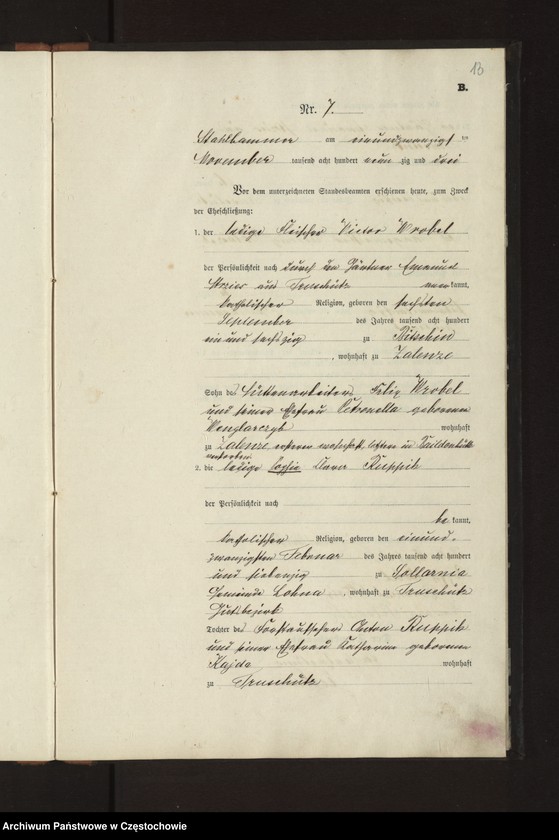 13
B.
Nr. 7.
Stahlhammer am einundzwanzigsten
November tausend acht hundert neunzig und drei
Vor dem unterzeichneten Standesbeamten erschienen heute, zum Zweck
der Eheschließung:
1. der ledige Fleischer Victor Wrobel
der Persönlichkeit nach durch den Gärtner
aus Truschütz kannt,
katholischer Religion, geboren den sechsten
September des Jahres tausend acht hundert
ein und sechszig zu Bitschin
, wohnhaft zu Zalenze
Sohn des Hüttenarbeiters Felix Wrobel
und seiner Ehefrau Petronella geborenen
Wenglarczyk wohnhaft
zu Zalenze ersterer wohnhaft, letztere in Baildonhütte
verstorben
2. die ledige Sophie Clara Kuppik
der Persönlichkeit nach
be kannt,
katholischer Religion, geboren den einund-
zwanzigsten Februar des Jahres tausend acht hundert
und siebenzig zu Sollarnia
Gemeinde Lohna, wohnhaft zu Truschütz
Gutsbezirk
Tochter des Anton Kuppik
und seiner Ehefrau Katharina geborenen
Kajda wohnhaft
zu Truschütz
Archiwum Państwowe w Częstochowie